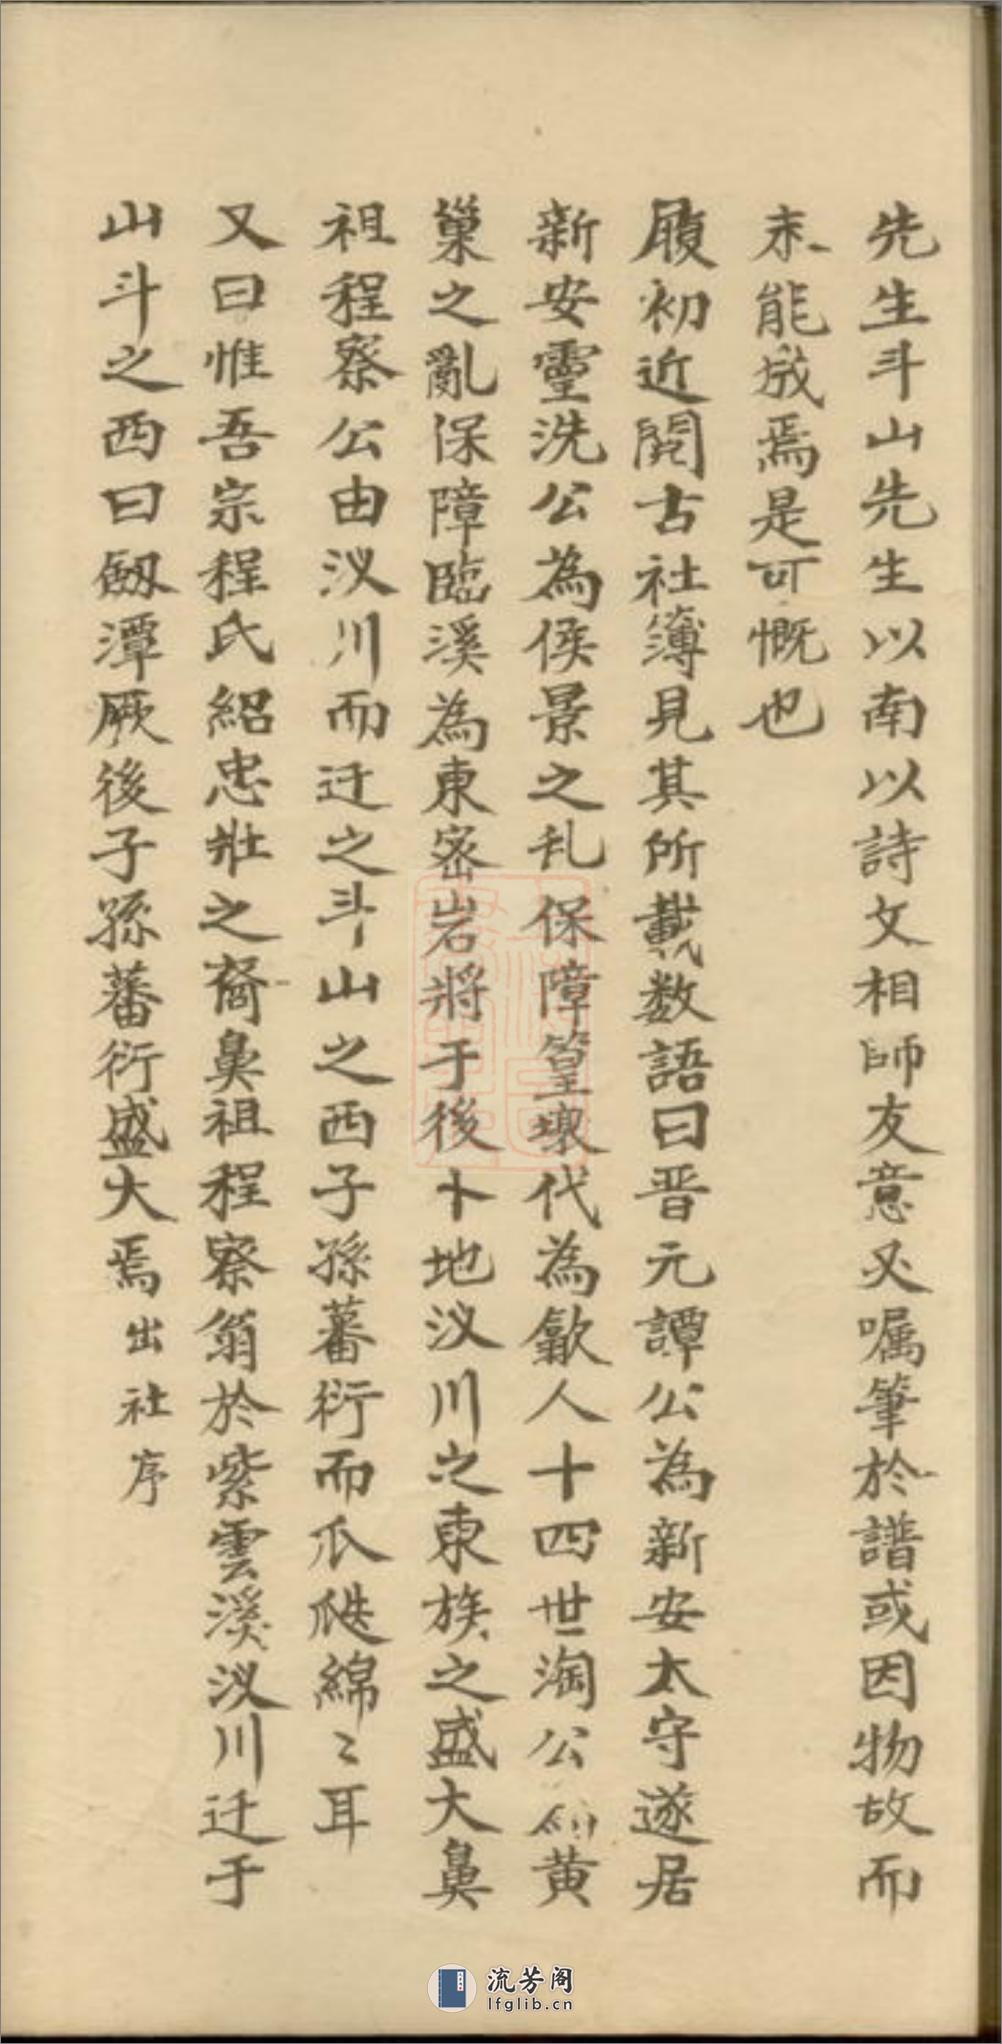 先生斗山先生以南以詩文相師友意必嘱筆於譜或因物故而
未能成焉是可慨也
履初近閱古社簿見其所載数語曰晋元譚公為新安太守遂居
新安靈洗公為侯景之乱保障篁墩代為歙人十四世淘公 黄
巢之亂保障臨溪為東密岩將于後卜地汊川之東族之盛大鼻
祖程察公由汊川而迁之斗山之西子孫蕃衍而瓜瓞綿〻耳
又曰惟吾宗程氏紹忠壯之裔鼻祖程察翁於紫雲溪汊川迁于
山斗之西曰劔潭厥後子孫蕃衍盛大焉出社序
流芳阁
lfglib.cn